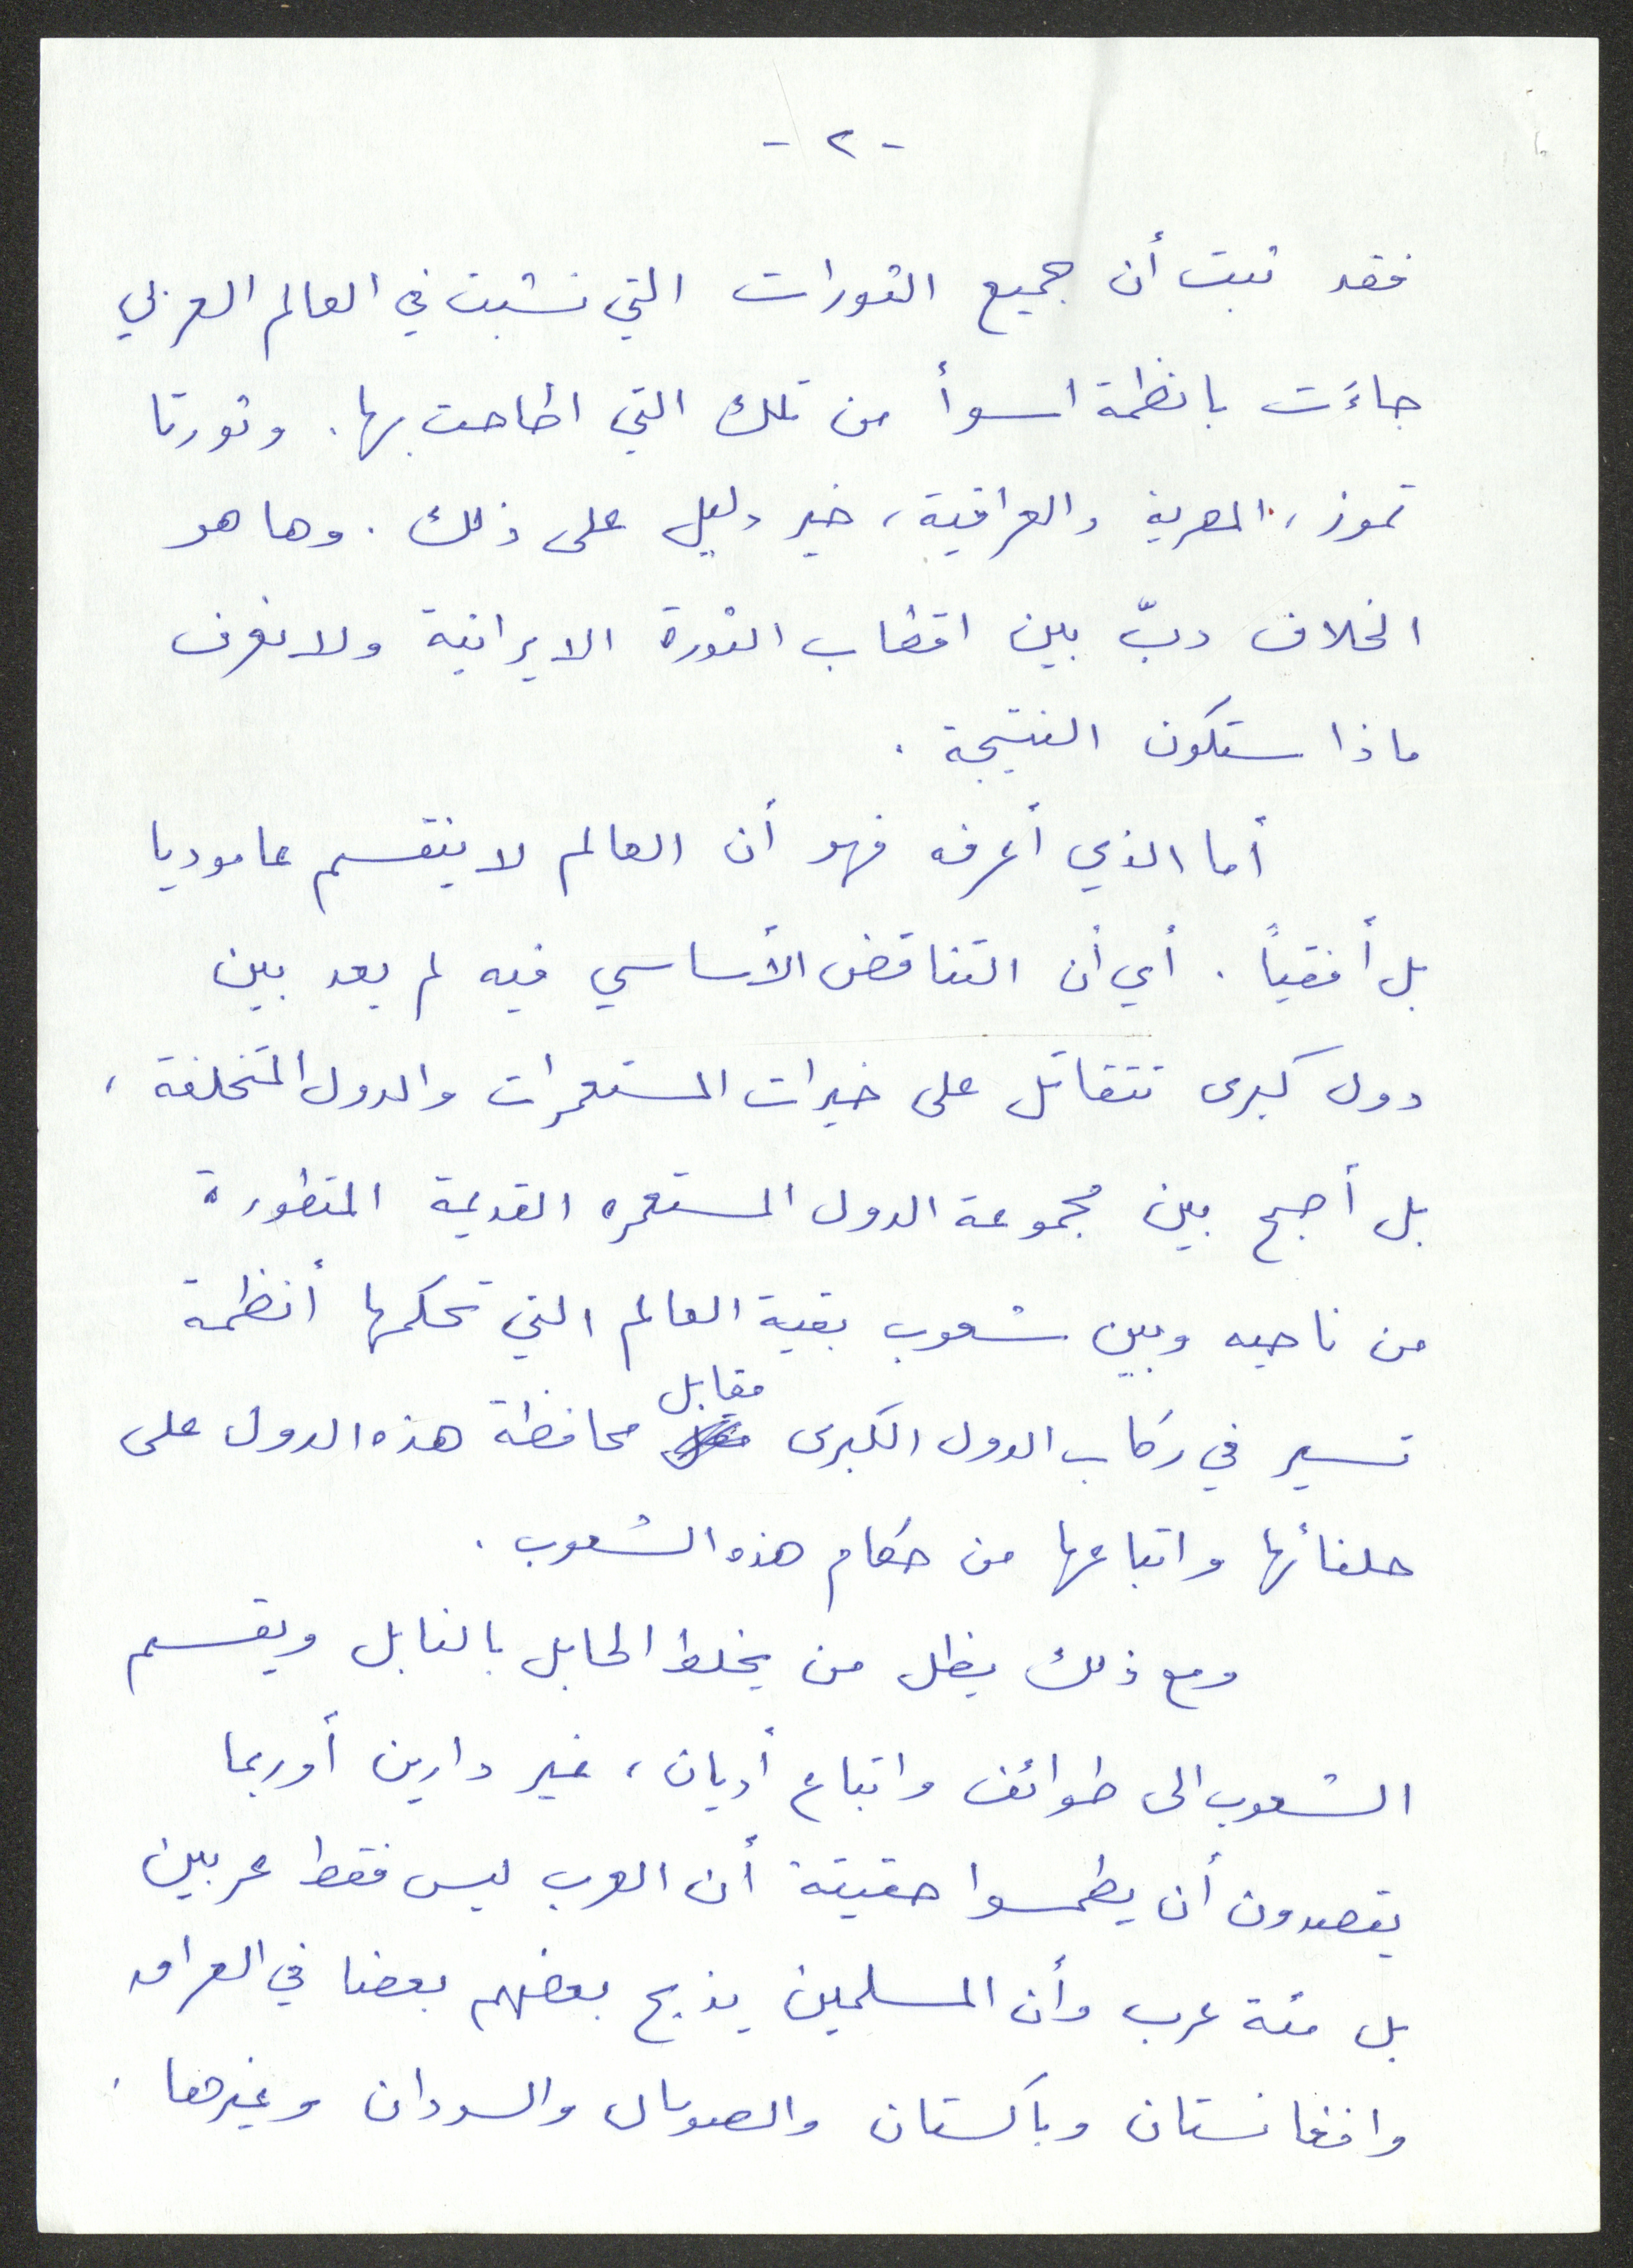 - ٢ -
فقد ثبت أن جميع الثورات التي نشبت في العالم العربي
جاءت بانظمة اسوأ من تلك التي اطاحت بها. وثورتا
تموز، المصرية والعراقية، خير دليل على ذلك. وها هو
الخلاف دبّ بين اقطاب الثورة الايرانية ولا نعرف
ماذا ستكون النتيجة.
أما الذي أعرفه فهو أن العالم لا ينقسم عاموديا
بل أفقياً. أي أن التناقض الأساسي فيه لم يعد بين
دول كبرى تتقاتل على خيرات المستعمرات والدول المتخلفة،
بل أصبح بين مجموعة الدول المستعمره القديمة المتطورة
من ناحيه وبين شعوب بقية العالم التي تحكمها أنظمة
تسير في ركاب الدول الكبرى مقابل محافظة هذه الدول على
حلفائها واتباعها من حكام هذه الشعوب.
ومع ذلك يظل من يخلط الحابل بالنابل ويقسم
الشعوب الى طوائف واتباع أديان، غير دارين أو ربما
يقصدون أن يطمسوا حقيقة أن العرب ليس فقط عربين
بل مئة عرب وأن المسلمين يذبح بعضهم بعضا في العراق
وافغانستان وباكستان والصومال والسودان وغيرها.